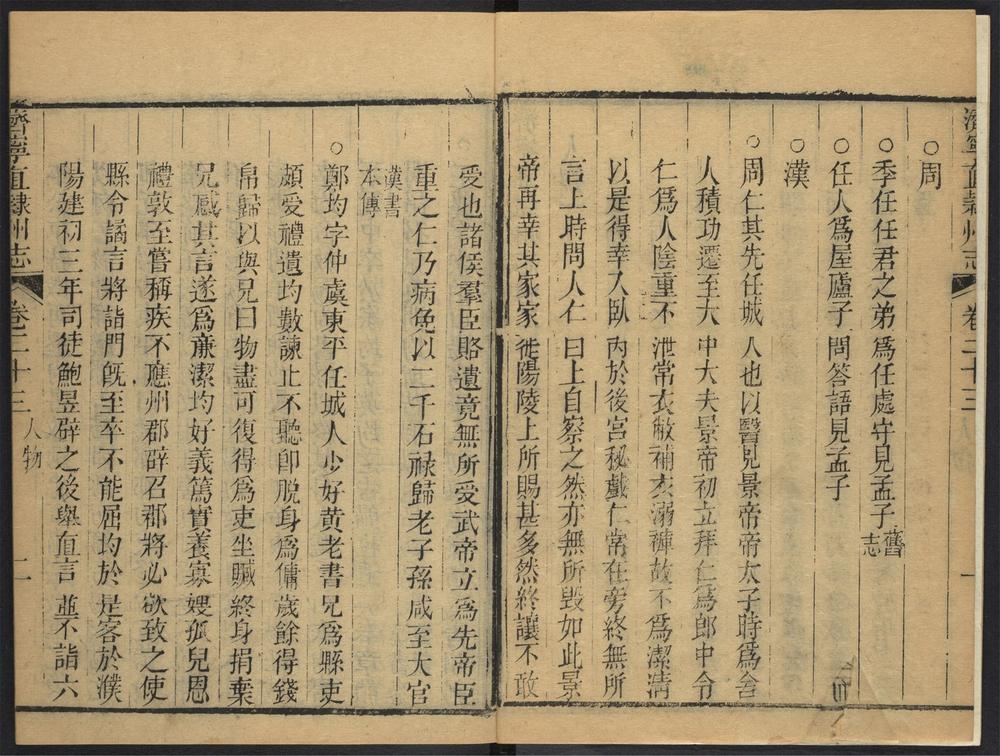 濟寧直隸州志 卷二十三
○周
○季任任君之弟爲任處守見孟子 舊志
○任人爲屋廬子問答語見孟子
○漢
○周仁其先任城人也以醫見景帝帝太子時爲舍
人積功遷至大中大夫景帝初立拜仁爲郎中令
仁爲人陰重不泄常衣敝補衣溺褲故不爲潔淸
以是得幸入臥內於後宮秘戲仁常在旁終無所
言上時問人仁曰上自察之然亦無所毀如此景
帝再幸其家家徙陽陵上所賜甚多然終讓不敢
受也諸侯羣臣賂遺竟無所受武帝立爲先帝臣
重之仁乃病免以二千石祿歸老子孫咸至大官
漢書本傳
○鄭均字仲虞東平任城人少好黃老書兄爲縣吏
頗受禮遺均數諫止不聽卽脫身爲傭歲餘得錢
帛歸以與兄曰物盡可復得爲吏坐贓終身捐棄
兄感其言遂爲廉潔均好義篤實養寡嫂孤兒恩
禮敦至嘗稱疾不應州郡辟召郡將必欲致之使
縣令譎言將詣門旣至卒不能屈均於是客於濮
陽建初三年司徒鮑昱辟之後舉直言並不詣六
濟寧直隸州志 卷二十三 人物 二